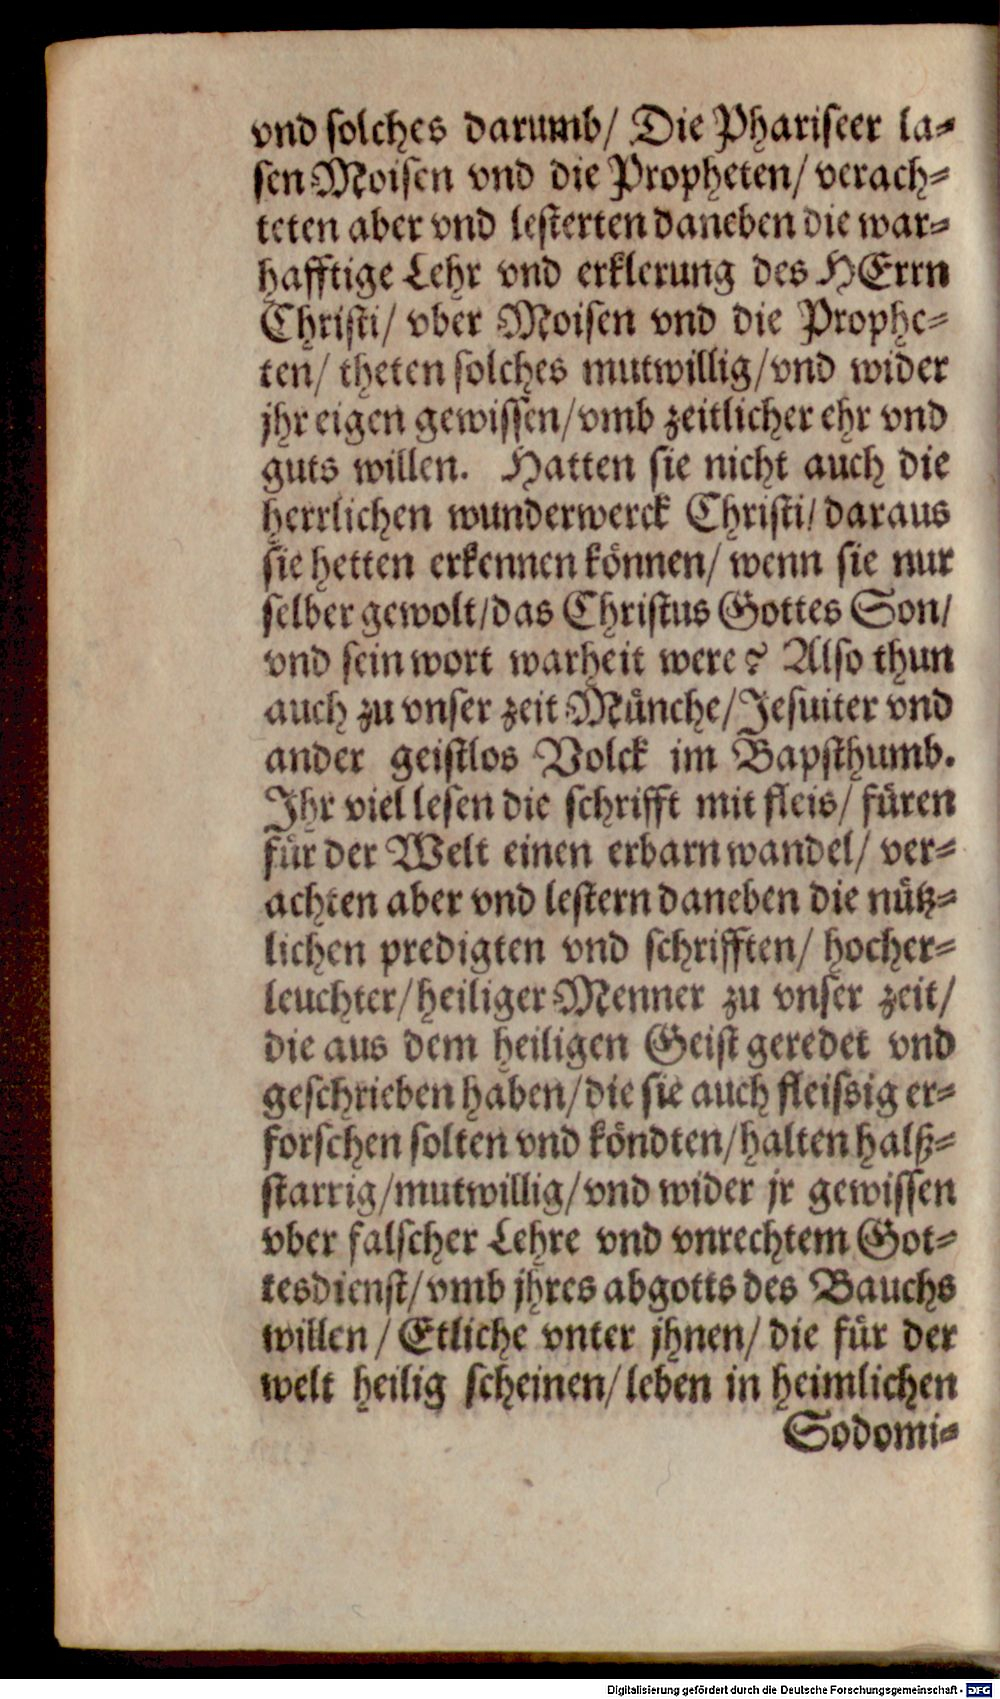 vnd solches darumb/ Die Phariseer la-
sen Moisen vnd die Propheten/ verach-
teten aber vnd lesterten daneben die war-
hafftige Lehr vnd erklerung des HErrn
Christi/ vber Moisen vnd die Prophe-
ten/ theten solches mutwillig/ vnd wider
jhr eigen gewissen/ vmb zeitlicher ehr vnd
guts willen. Hatten sie nicht auch die
herrlichen wunderwerck Christi/ daraus
sie hetten erkennen können/ wenn sie nur
selber gewolt/ das Christus Gottes Son/
vnd sein wort warheit were? Also thun
auch zu vnser zeit Münche/ Jesuiter vnd
ander geistlos Volck im Bapsthumb.
Ihr viel lesen die schrifft mit fleis/ füren
für der Welt einen erbarn wandel/ ver-
achten aber vnd lestern daneben die nütz-
lichen predigten vnd schrifften/ hocher-
leuchter/ heiliger Menner zu vnser zeit/
die aus dem heiligen Geist geredet vnd
geschrieben haben/ die sie auch fleissig er-
forschen solten vnd köndten/ halten halß-
starrig/ mutwillig/ vnd wider jr gewissen
vber falscher Lehre vnd vnrechtem Got-
tesdienst/ vmb jhres abgotts des Bauchs
willen/ Etliche vnter jhnen/ die für der
welt heilig scheinen/ leben in heimlichen
Sodomi-
Digitalisierung gefördert durch die Deutsche Forschungsgemeinschaft - DFG